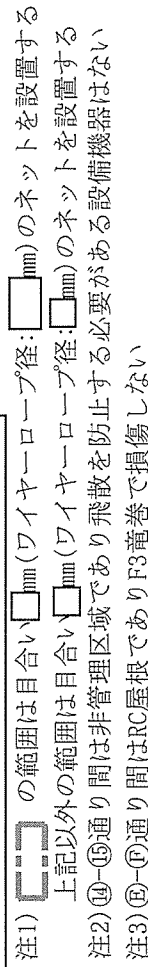 注1) の範囲は目合い□mm(ワイヤーロープ径:□mm)のネットを設置する
上記以外の範囲は目合い□mm(ワイヤーロープ径:□mm)のネットを設置する
注2)⑭-⑮通り間は非管理区域であり飛散を防止する必要がある設備機器はない
注3)Ⓔ-Ⓕ通り間はRC屋根でありF3竜巻で損傷しない